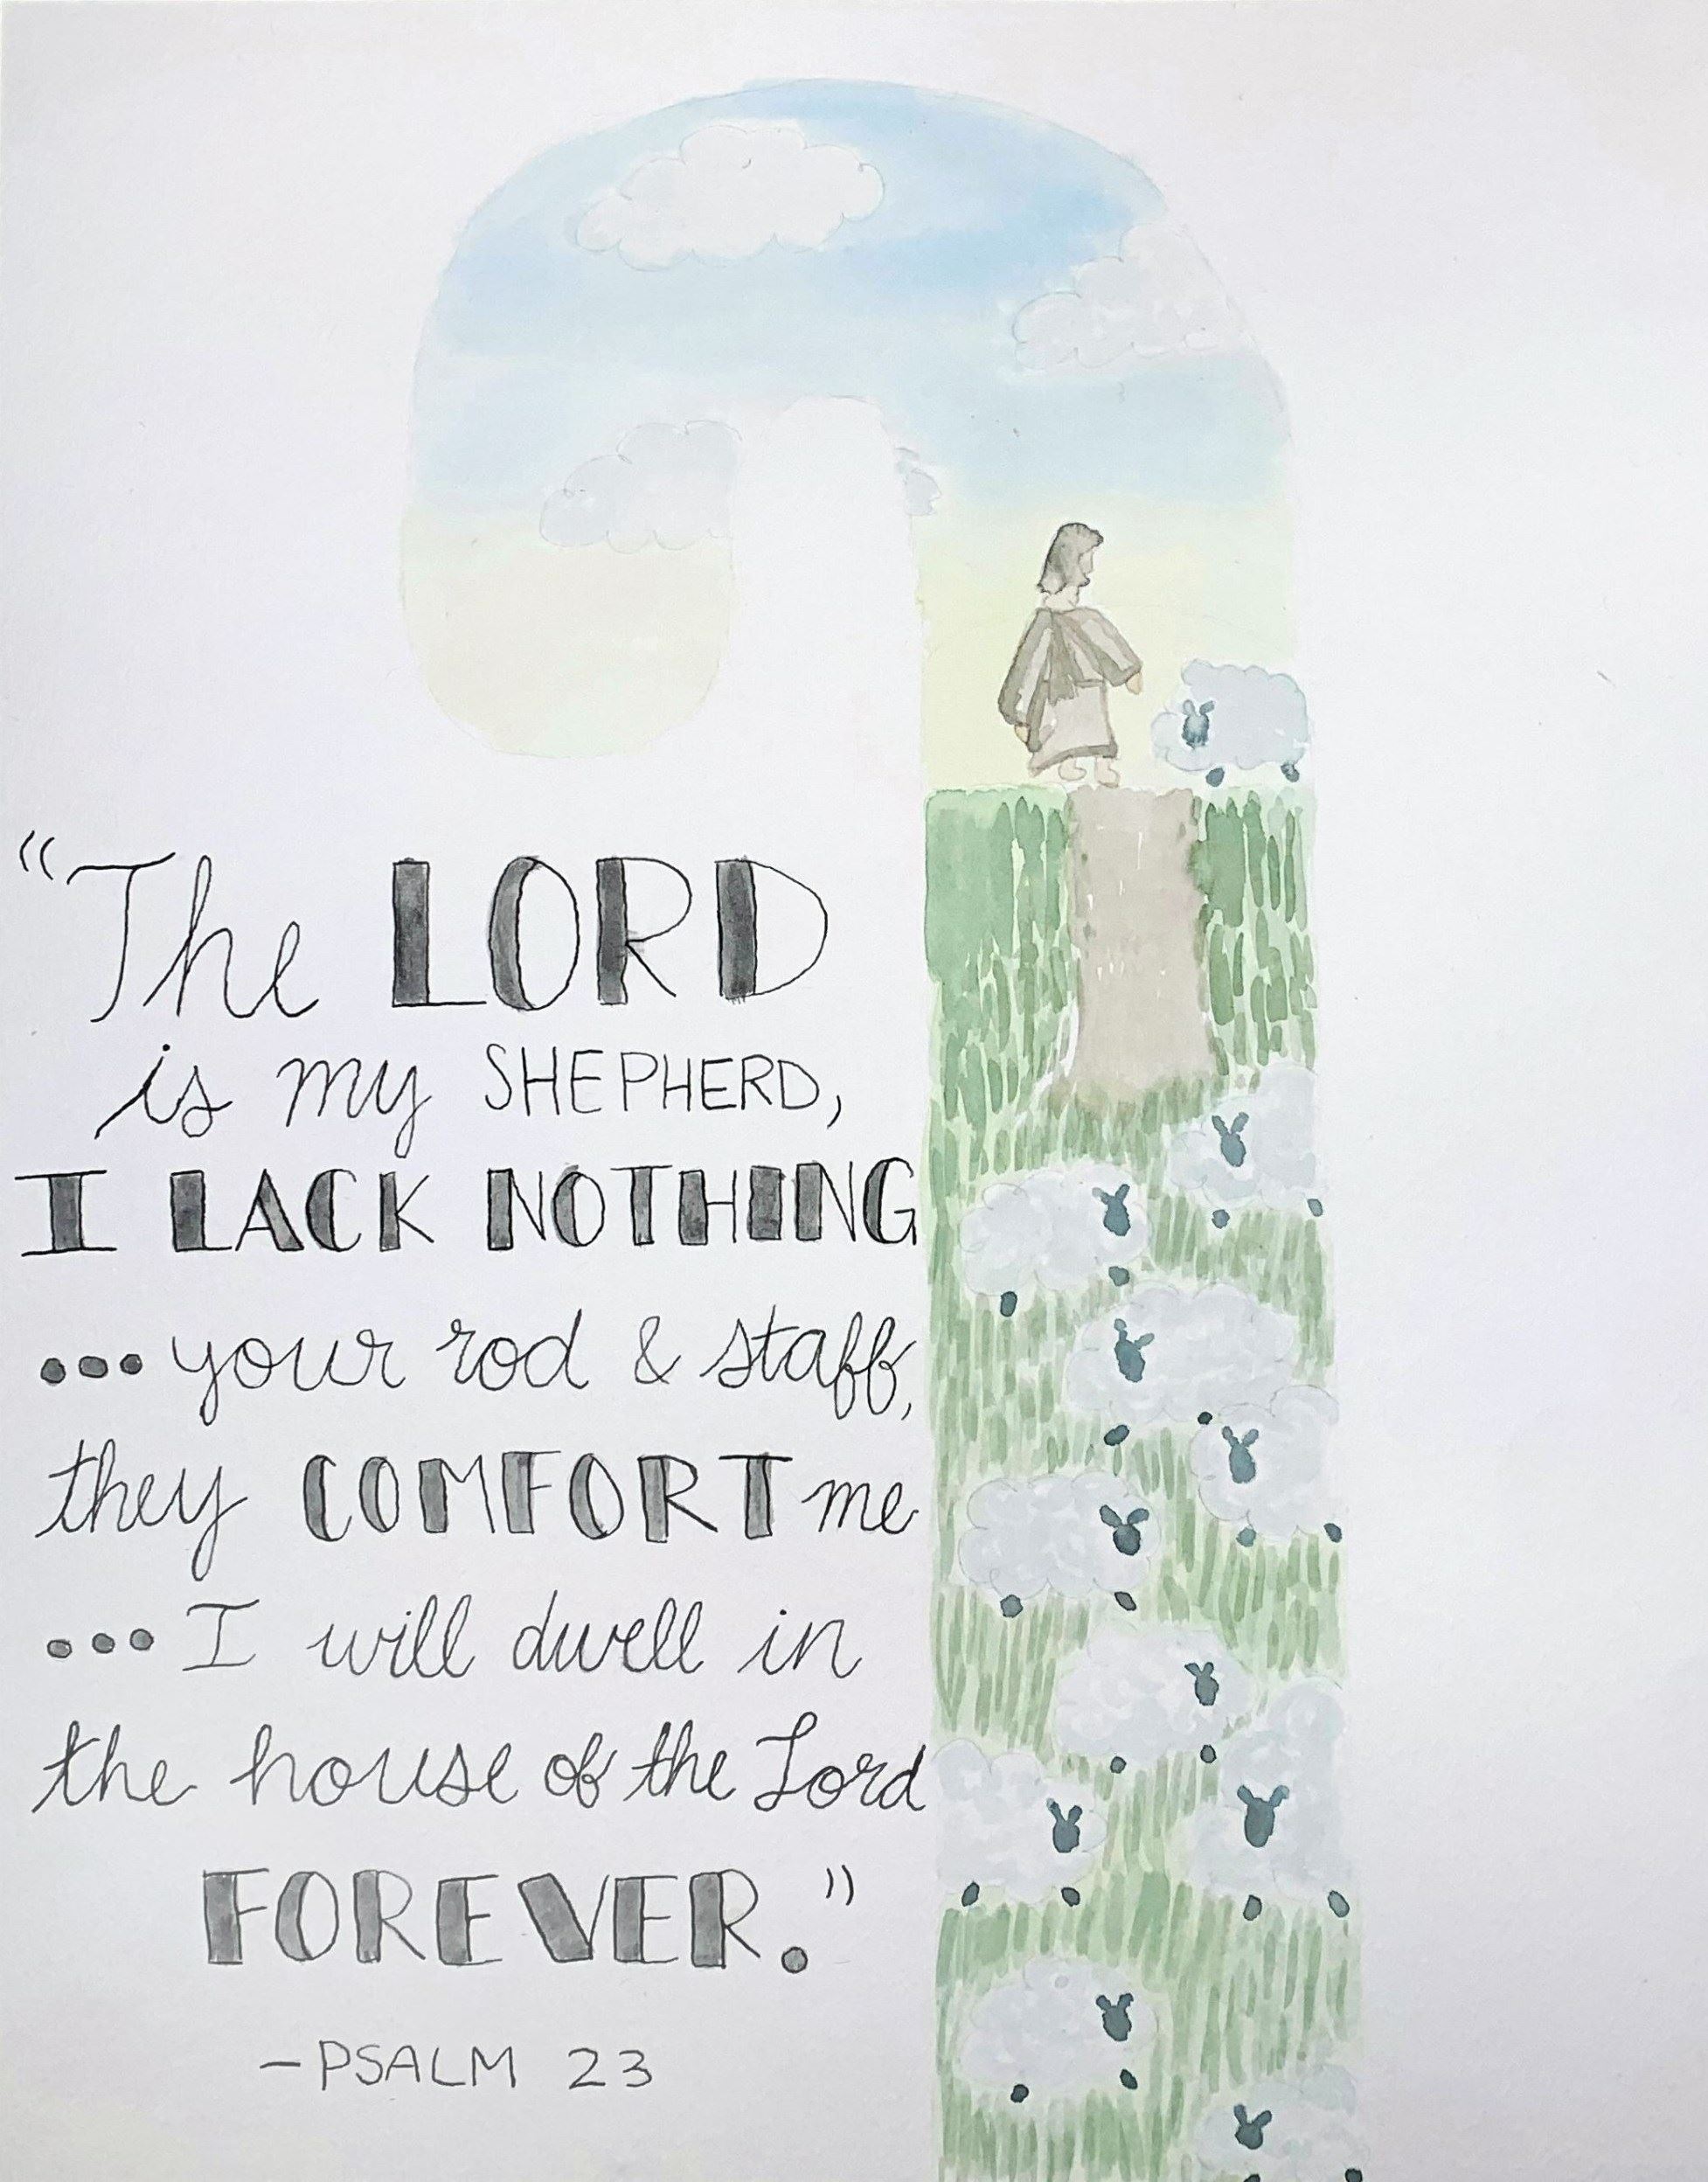 “The LORD
is my SHEPHERD,
I LACK NOTHING
...your rod & staff,
they COMFORT me
...I will dwell in
the house of the Lord
FOREVER.”
-PSALM 23